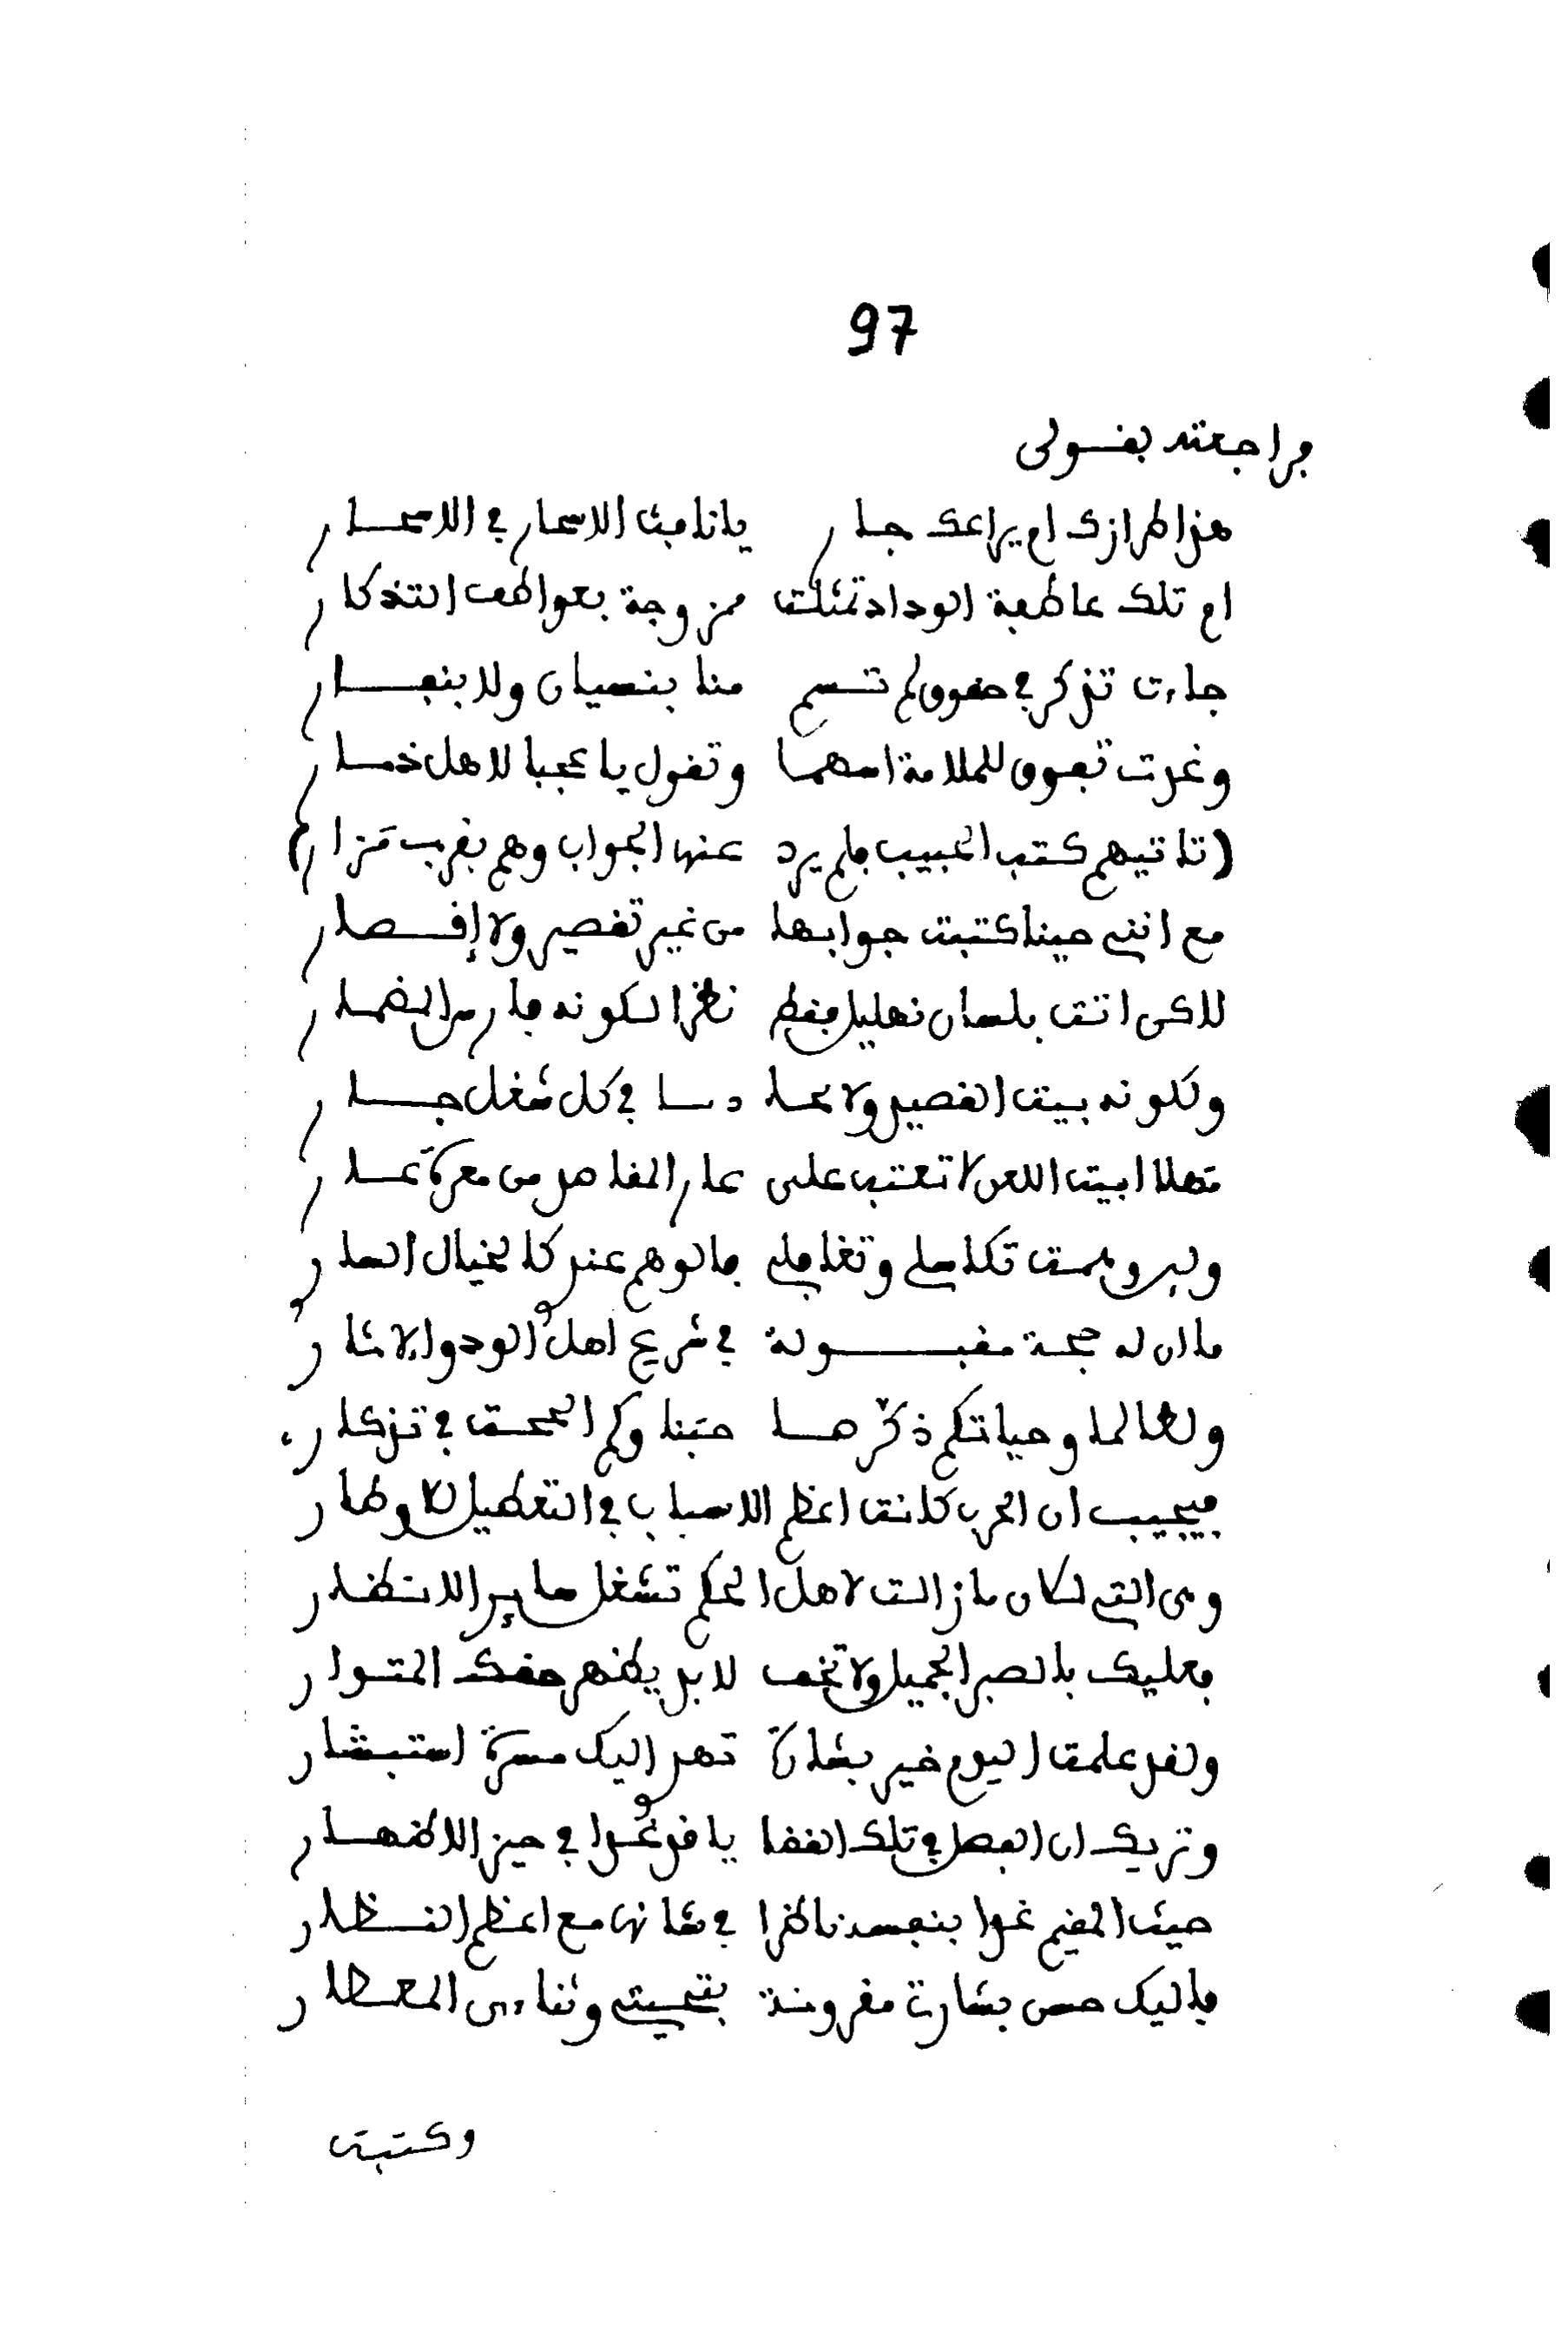 97
فراجعته بقولى
هذا طرازك ام يراعك جار يا نافث الاسحار في الاسحار
ام تلك عاطفة الوداد تمثلت ممزوجة بعواطف التذكار
جاءت تذكر في حقوق لم تسم منا بنسيان ولا بنفار
وغدت تفوق للملامة اسهما وتقول يا عجبا لاهل ذمار
(تاتيهم كتب الحبيب فلم يرد عنها الجواب وهم بقرب مزار)
مع اننى حينا كتبت جوابها من غير تقصير ولا إقصار
لاكن اتت بلسان نهليل فقط نظرا لكونه فارس المضمار
ولكونه بيت القصيد ولا محا دسا في كل شغل جار
مهلا ابيت اللعن لا تعتب على عار المفاصل من معرة عار
ولدو همت تكاسلى وتغافلى فالوهم عندكا لخيال السار
ما ان له حجة مقبولة في شرع اهل الود والايثار
ولطالما وحياتكم ذكرها حبنا وكم الححت في تذكار،
فيجيب ان الحرب كانت اعظم الاسباب في التعطيل للاوطار
وهى التى لكان مازالت لاهل الحكم تشغل سايرالانظار
فعليك بالصبر الجميل ولا تخف لابد يظهر حقك المتوار
ولقد علمت اليوم خير بشارة تهدى اليك مسرة استبشار
وتريك ان الفصل في تلك القضا يا قد غدا في حيز الاظهار
حيث المقيم غدا بنفسه ناظرا في شانها مع اعظم النظار
فاليك حسن بشارة مقرونة بتحيتى وثناءى المعطار
وكتبت